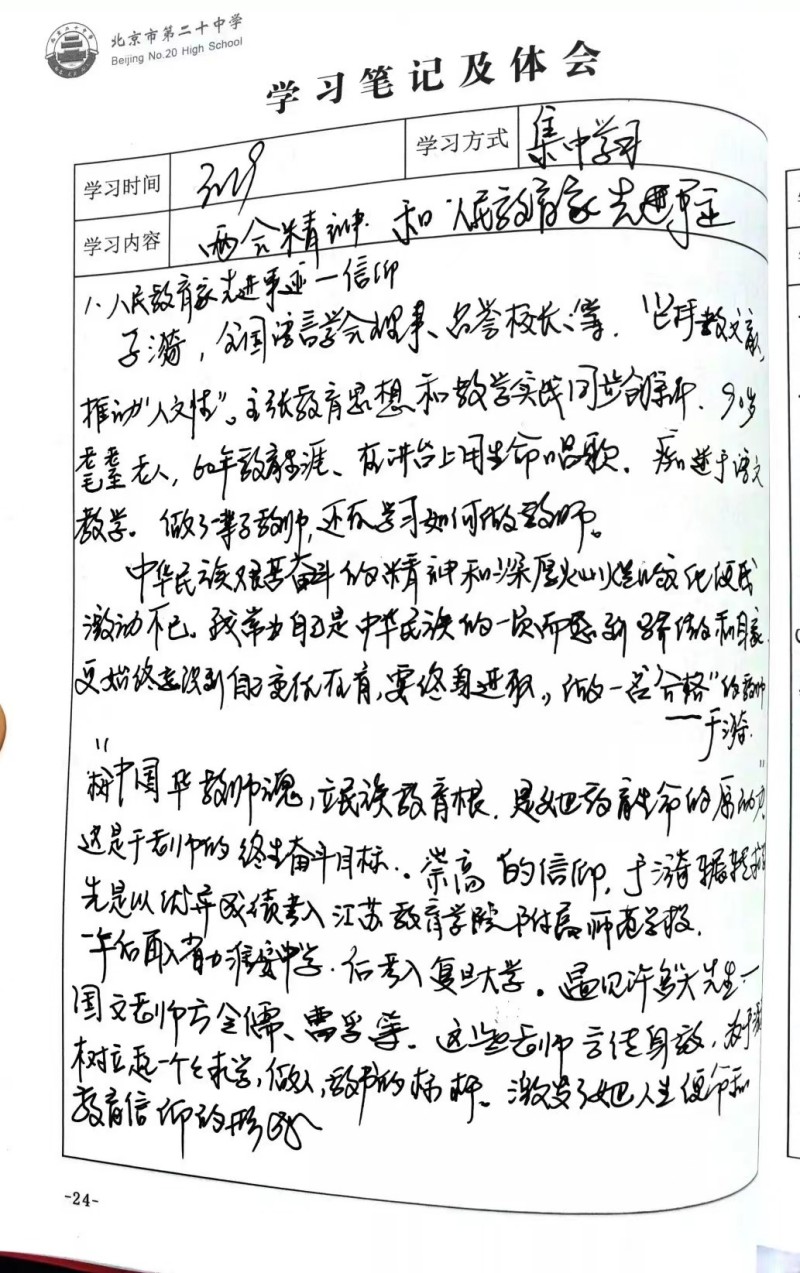 北京市第二十中学
Beijing No.20 High School
学习笔记及体会
学习时间 3.29 学习方式 集中学习
学习内容 两会精神 和"人民教育家"先进事迹
1、人民教育家先进事迹—信仰
于漪，全国语言学会理事、名誉校长等．
推动"人文性"。主张教育思想和教学实践同步创新．90岁
耄耋老人，60年教育生涯、在讲台上用生命唱歌．痴迷于语文
教学。做了一辈子教师，还在学习如何做教师。
中华民族艰苦奋斗的精神和深厚灿烂的文化使我
激动不已。我常为自己是中华民族的一员而感到骄傲和自豪
更始终意识到自己重任在肩，要终身进取，做一名"合格"的教师
——于漪．
"树中国 教师魂，立民族教育根．是她教育生命的原动力"
这是于老师的终生奋斗目标．崇高的信仰，于漪辗转
先是以优异成绩考入江苏教育学院附属师范学校．
一年后再入省立淮安中学．后考入复旦大学。遇见许 先生一
国文老师方令孺、曹孚等．这些老师言传身教，为于漪
树立起一个个求学，做人，教书的标杆。激发了她人生使命和
教育信仰的形成
-24-